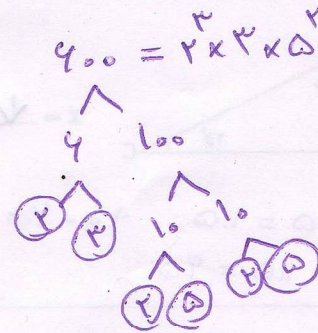 ۶۰۰ = ۲³ × ۳ × ۵²
۶ ۱۰۰
۲ ۳ ۱۰ ۱۰
۲ ۵ ۲ ۵